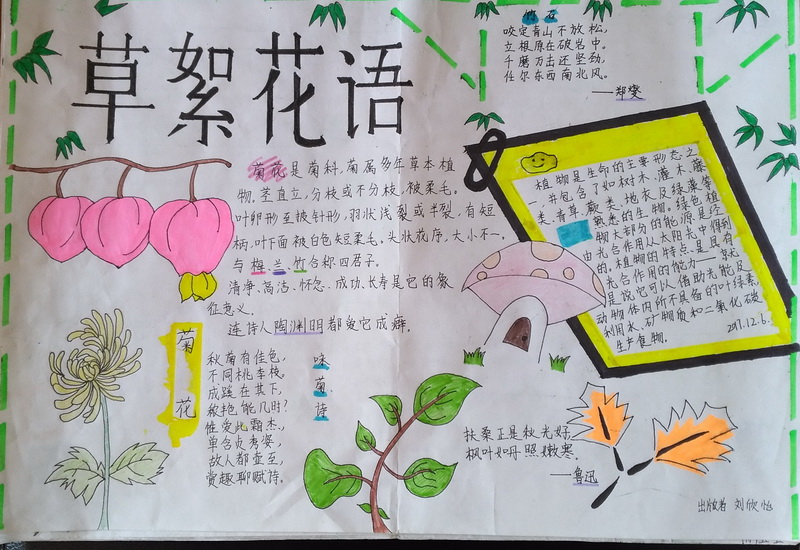 草絮花语
竹石
咬定青山不放松,
立根原在破岩中。
千磨万击还坚劲,
任尔东西南北风。
——郑燮
菊花是菊科,菊属多年草本植
物。茎直立,分枝或不分枝,被柔毛。
叶卵形至披针形,羽状浅裂或半裂,有短
柄,叶下面被白色短柔毛。头状花序,大小不一。
与梅兰竹合称四君子。
清净、高洁、怀念、成功、长寿是它的象
征意义。
连诗人陶渊明都爱它成癖。
植物是生命的主要形态之
一,并包含了如树木,灌木,藤
类,青草,蕨类,地衣及绿藻等
熟悉的生物。绿色植
物大部分的能源是经
由光合作用从太阳光中得到
的。植物的特点是具有
光合作用的能力——就
是说它可以借助光能及
动物体内所不具备的叶绿素,
利用水、矿物质和二氧化碳
生产食物。
2017.12.6.
菊花
咏菊诗
秋菊有佳色,
不同桃李枝。
成蹊在其下,
秾艳能几时?
惟爱此霜杰,
单含贞秀姿,
故人都壶至,
赏趣聊赋诗。
扶桑正是秋光好,
枫叶如丹照嫩寒。
——鲁迅
出版者 刘欣怡